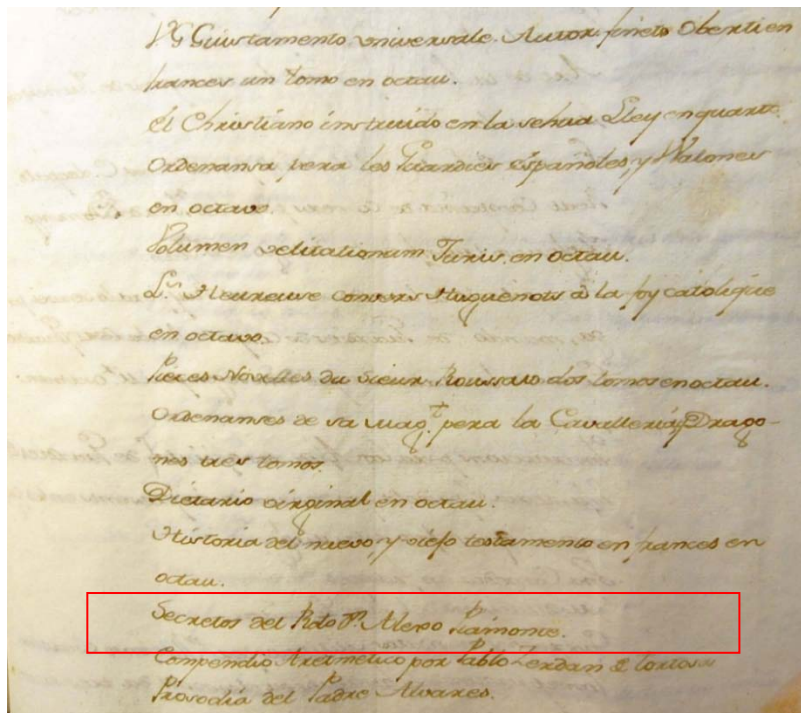 V G Giustamento universale. Autor. prieto Oberti en
frances un tomo en octau.
El Christiano instruido en la sehua Lley en quarto.
Ordenansa pera los Guardies Españoles, y Walones
en octavo.
Volumen Juris. en octau.
L.ⁿ Heureuse convers Huguenots à la foy catolique
en octavo.
Pieces Novelles du Sieur Roussavo dos tomos en octau.
Ordenanses de sa Mag.ᵗ pera la Cavalleria, y Drago-
nes tres tomos.
Dictario virginal en octau.
Historia del nuevo, y viejo testamento en frances en
octau.
Secretos del Rdo P.ᵉ Alexo Piamonte.
Compendio Aretmetico por Pablo Zerdan Tortosa
Prosodia del Padre Alvares.